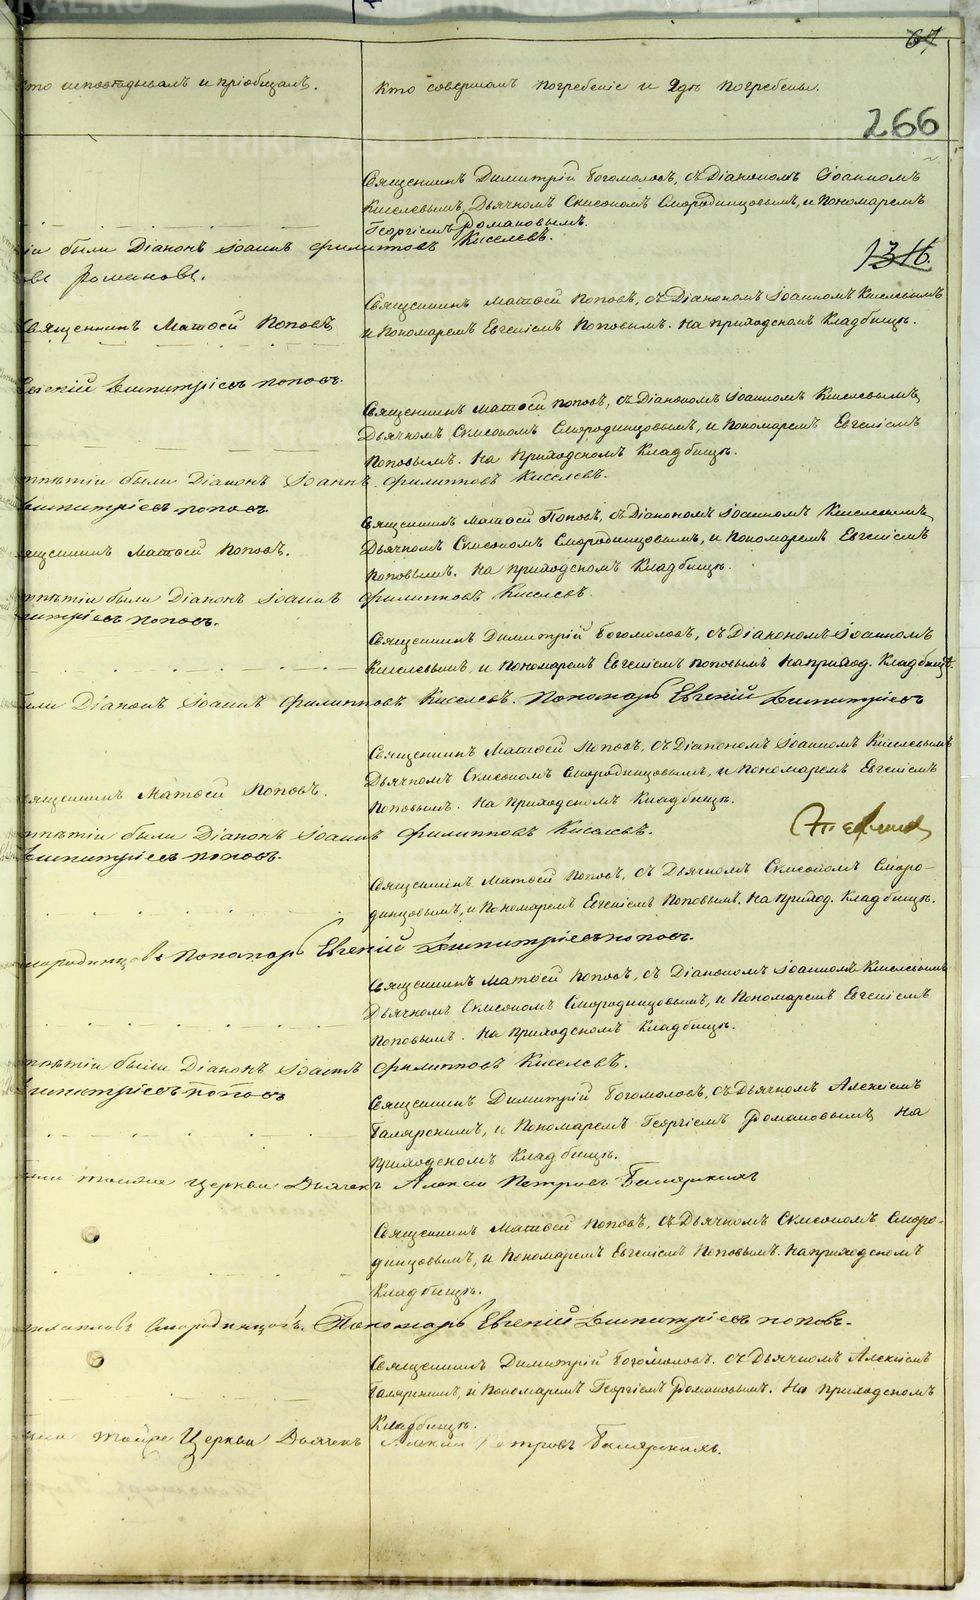 67
Кто исповѣдывалъ и пріобщалъ.
Кто совершалъ погребеніе и гдѣ погребены.
266
Священникъ Димитрій Богомоловъ, съ Діакономъ Іоанномъ
Киселевымъ, Дьячкомъ Смородинцовымъ, и Пономаремъ
Георгіемъ Романовымъ.
были Діаконъ Іоаннъ Филиповъ Киселевъ.
Романовъ.
1316.
Священникъ Матѳей Поповъ, съ Діакономъ Іоанномъ Киселевымъ
Священникъ Матѳей Поповъ
и Пономаремъ Евгеніемъ Поповымъ. На приходскомъ Кладбищѣ.
Димитріевъ Поповъ.
Священникъ Матѳей Поповъ, съ Діакономъ Іоанномъ Киселевымъ,
Дьячкомъ Смородинцовымъ, и Пономаремъ Евгеніемъ
Поповымъ. На Приходскомъ Кладбищѣ.
были Діаконъ Іоаннъ Филипповъ Киселевъ.
Димитріевъ Поповъ
Священникъ Матѳей Поповъ, съ Діакономъ Іоанномъ Киселевымъ,
Дьячкомъ Смородинцовымъ, и Пономаремъ Евгеніемъ
Матѳей Поповъ.
Поповымъ. На приходскомъ Кладбищѣ.
были Діаконъ Іоаннъ Филипповъ Киселевъ
Поповъ.
Священникъ Димитрій Богомоловъ, съ Діакономъ Іоанномъ
Киселевымъ, и Пономаремъ Евгеніемъ Поповымъ На приход. Кладбищѣ.
Діаконъ Іоаннъ Филипповъ Киселевъ. Пономарь Евгеній Димитріевъ
Священникъ Матѳей Поповъ, съ Діакономъ Іоанномъ Киселевымъ
Дьячкомъ Смородинцовымъ, и Пономаремъ Евгеніемъ
Матѳей Поповъ.
Поповымъ. На Приходскомъ Кладбищѣ.
были Діаконъ Іоаннъ Филипповъ Киселевъ.
Димитріевъ Поповъ.
Священникъ Матѳей Поповъ, съ Дьячкомъ Сморо-
динцовымъ, и Пономаремъ Евгеніемъ Поповымъ. На Приход. Кладбищѣ.
Пономарь Евгеній Димитріевъ Поповъ.
Священникъ Матѳей Поповъ, съ Діакономъ Іоанномъ Киселевымъ
Дьячкомъ Смородинцовымъ, и Пономаремъ Евгеніемъ
Поповымъ. На Приходскомъ Кладбищѣ.
были Діаконъ Іоаннъ Филипповъ Киселевъ.
Димитріевъ Поповъ
Священникъ Димитрій Богомоловъ, съ Дьячкомъ Алексіемъ
и Пономаремъ Георгіемъ Романовымъ, На
Приходскомъ Кладбищѣ.
Церкви Дьячекъ Алексій Петровъ
Священникъ Матѳей Поповъ, съ Дьячкомъ Сморо-
динцовымъ, и Пономаремъ Евгеніемъ Поповымъ. На приходскомъ
Кладбищѣ.
Смородинцовъ. Пономарь Евгеній Димитріевъ Поповъ.
Священникъ Димитрій Богомоловъ. съ Дьячкомъ Алексіемъ
и Пономаремъ Георгіемъ Романовымъ. На приходскомъ
Кладбищѣ.
Церкви Дьячекъ Алексій Петровъ